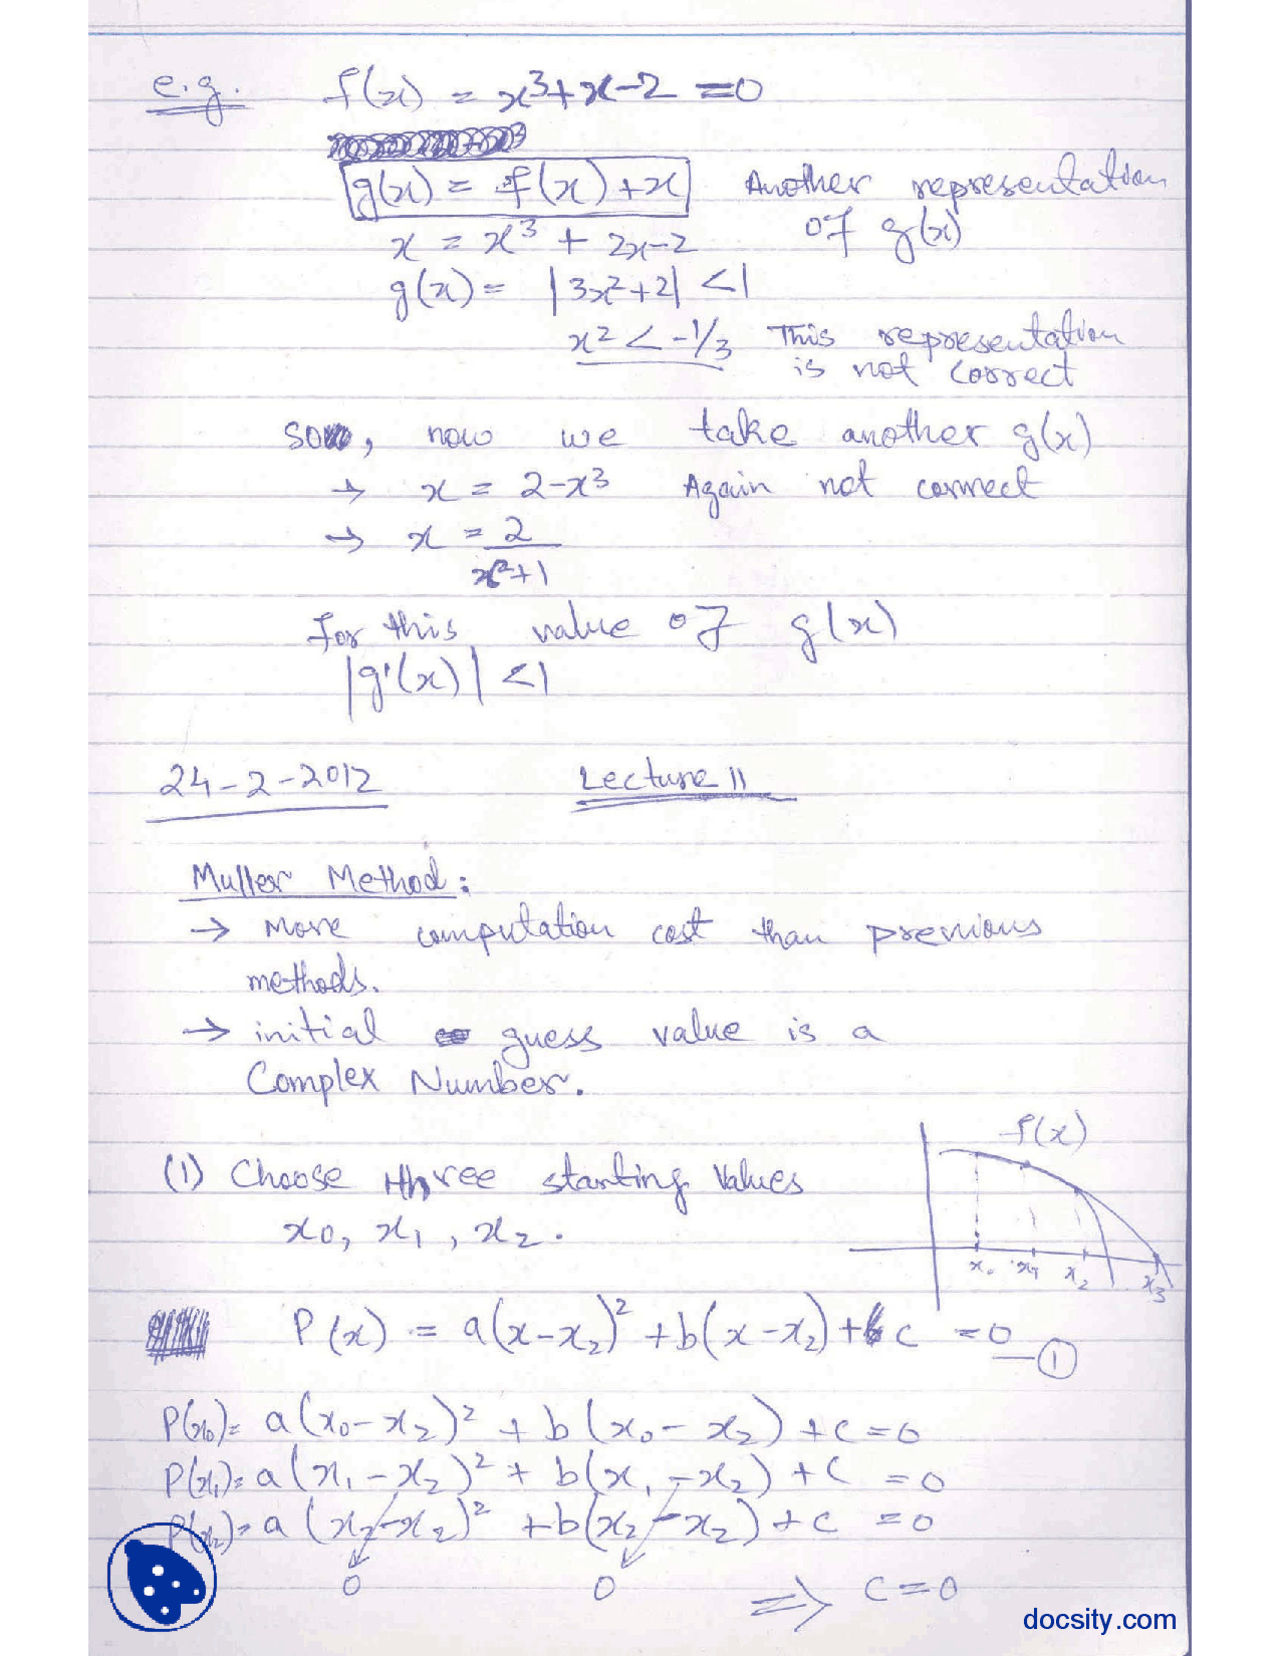 e.g. f(x) = x³+x-2 =0
g(x) = f(x)+x Another representation
of g(x)
x = x³ + 2x-2
g(x) = |3x²+2| <1
x² < -1/3 This representation
is not correct
so, now we take another g(x)
→ x = 2-x³ Again not correct
→ x = 2
x²+1
for this value of g(x)
|g'(x)| <1
24-2-2012 Lecture 11
Muller Method:
→ More computation cost than previous
methods.
→ initial guess value is a
Complex Number.
f(x)
(1) Choose three starting values
x0, x1, x2.
x0 x1 x2 x3
P(x) = a(x-x2)² + b(x-x2) + c = 0
①
P(x0)= a(x0-x2)² + b(x0-x2) + c = 0
P(x1)= a(x1-x2)² + b(x1-x2) + c = 0
P(x2)= a(x2-x2)² + b(x2-x2) + c = 0
0 0 ⇒ c = 0
docsity.com